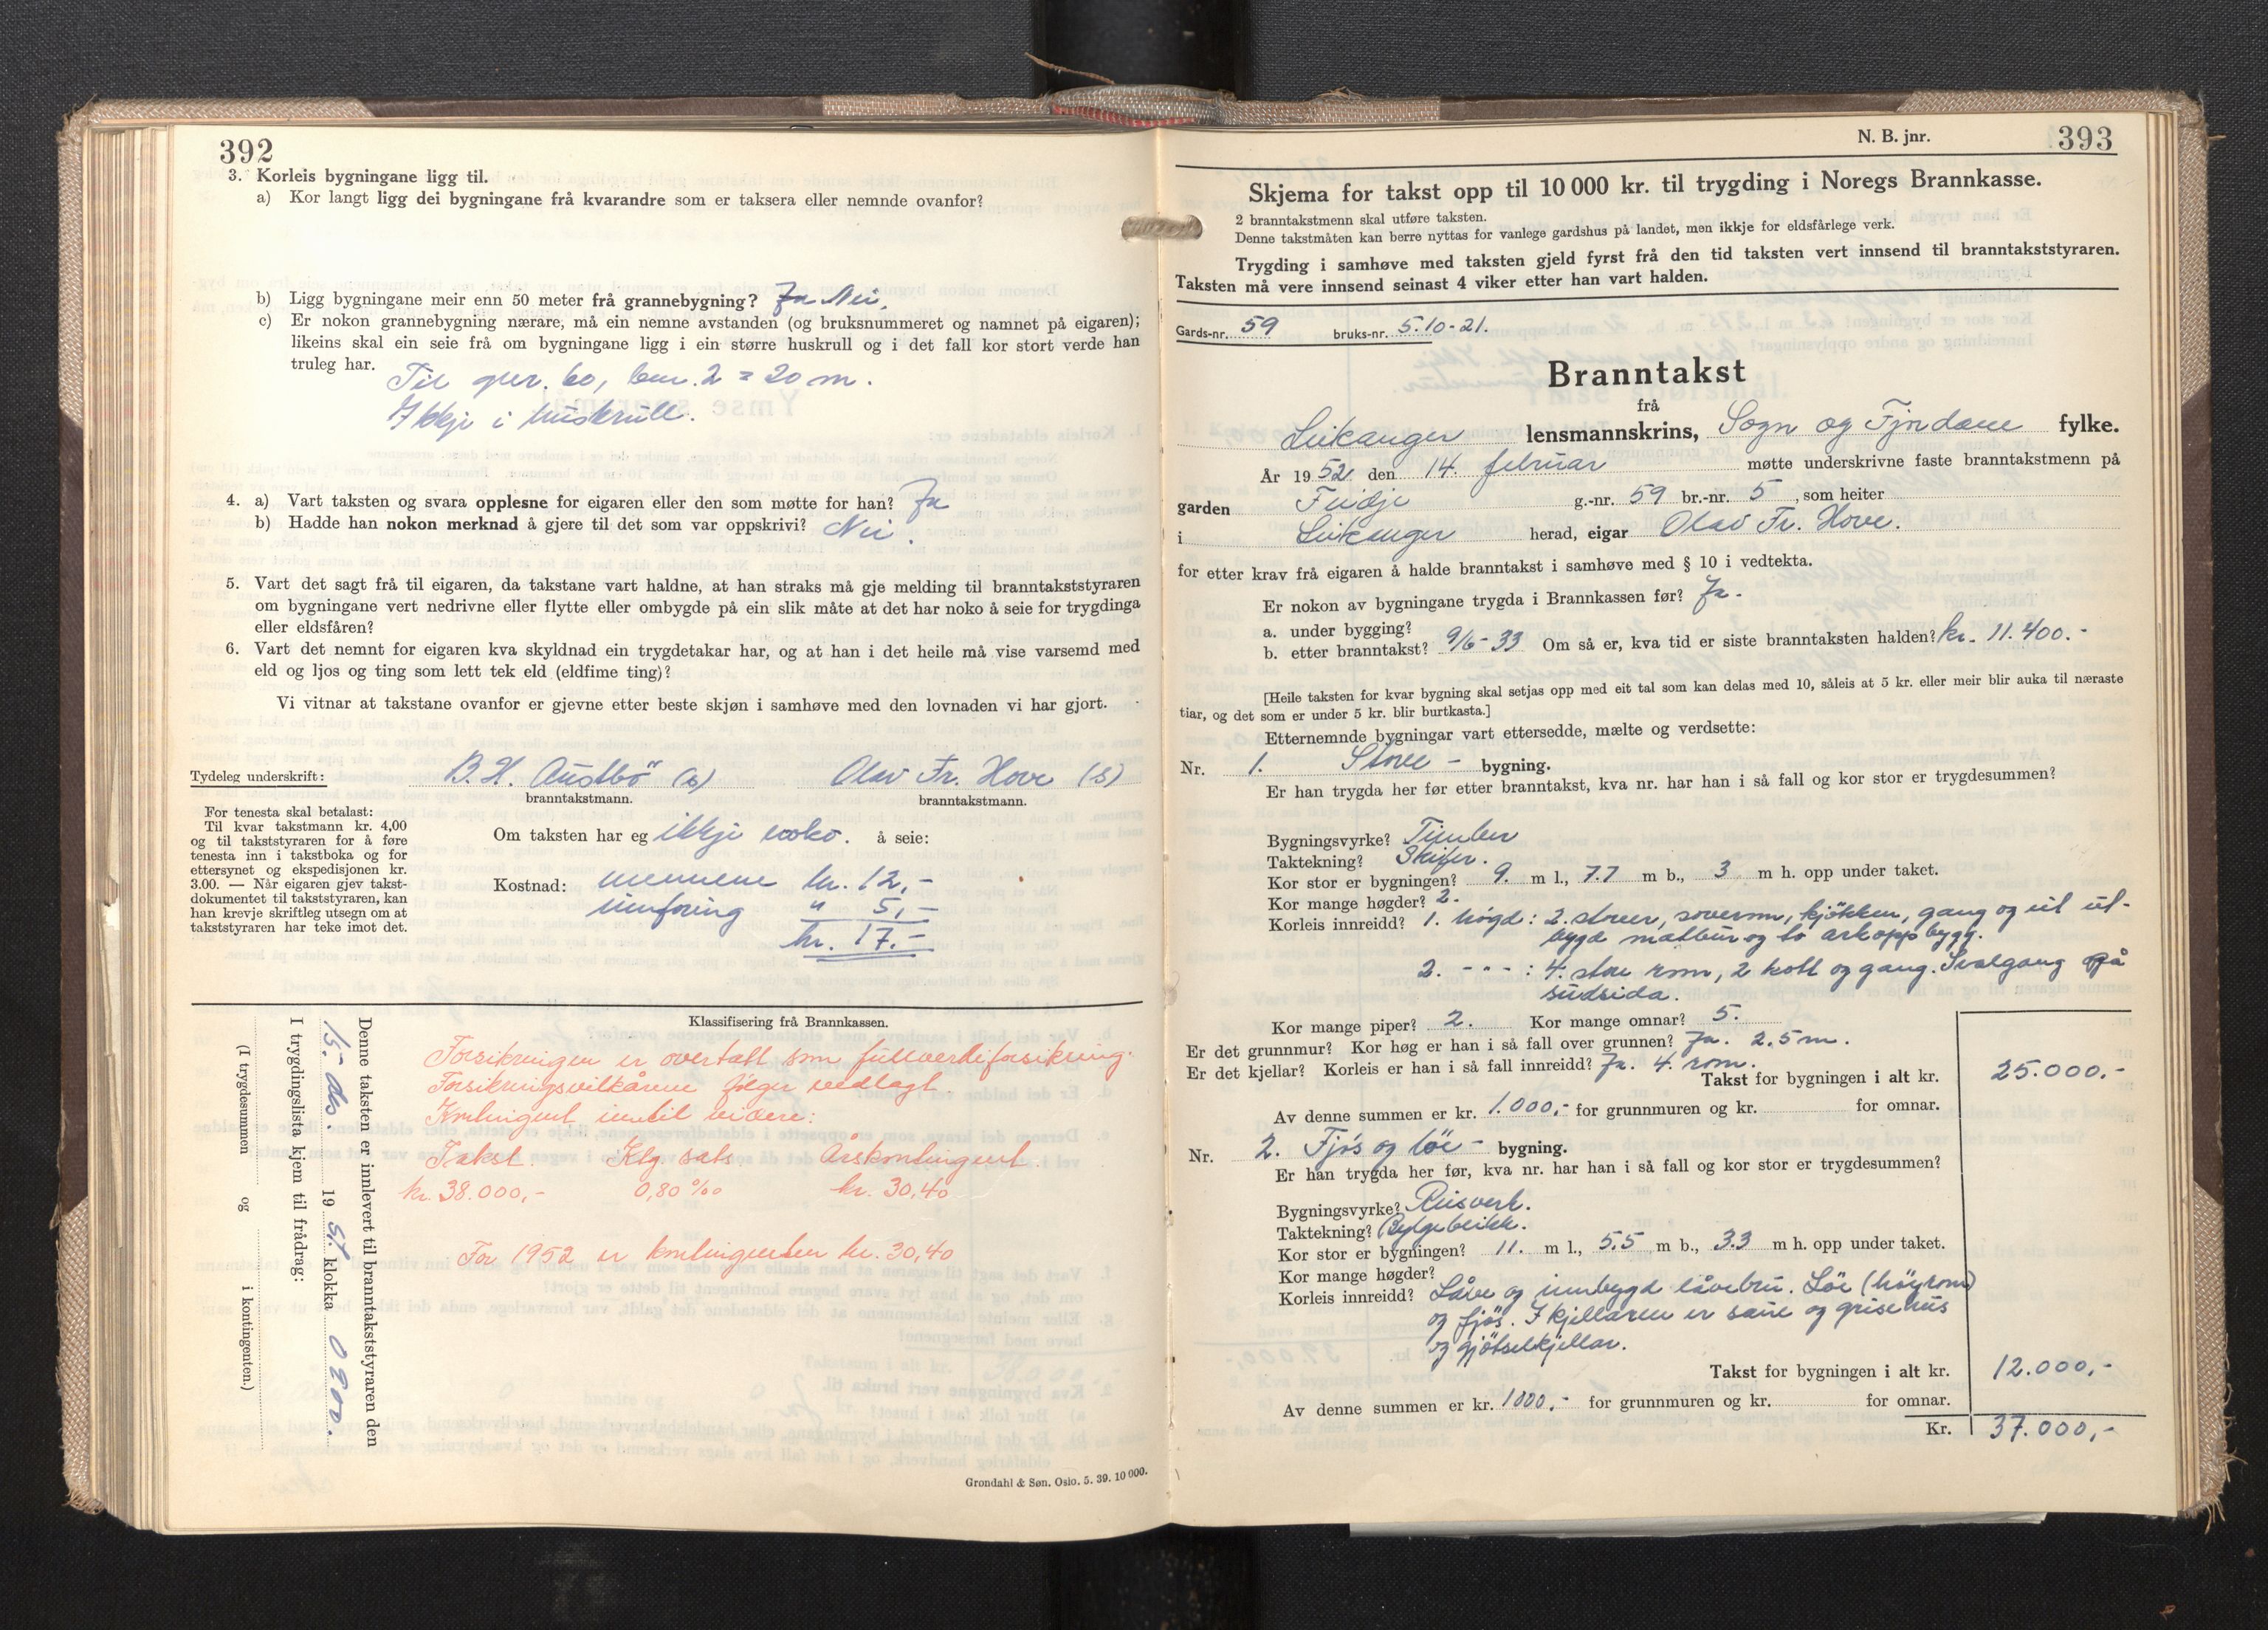 392
3. Korleis bygningane ligg til.
a) Kor langt ligg dei bygningane frå kvarandre som er taksera eller nemnde ovanfor?
b) Ligg bygningane meir enn 50 meter frå grannebygning? Ja Nei.
c) Er nokon grannebygning nærare, må ein nemne avstanden (og bruksnummeret og namnet på eigaren);
likeins skal ein seie frå om bygningane ligg i ein større huskrull og i det fall kor stort verde han
truleg har.
Til gnr. 60, bnr. 2 = 20 m.
Ikkje i huskrull.
4. a) Vart taksten og svara opplesne for eigaren eller den som møtte for han? Ja
b) Hadde han nokon merknad å gjere til det som var oppskrivi? Nei.
5. Vart det sagt frå til eigaren, da takstane vart haldne, at han straks må gje melding til branntakststyraren
om bygningane vert nedrivne eller flytte eller ombygde på ein slik måte at det har noko å seie for trygdinga
eller eldsfåren?
6. Vart det nemnt for eigaren kva skyldnad ein trygdetakar har, og at han i det heile må vise varsemd med
eld og ljos og ting som lett tek eld (eldfime ting)?
Vi vitnar at takstane ovanfor er gjevne etter beste skjøn i samhøve med den lovnaden vi har gjort.
Tydeleg underskrift: B. H. Austbö (s) Olav Fr. Hove (s)
branntakstmann. branntakstmann.
For tenesta skal betalast:
Til kvar takstmann kr. 4,00
og til takststyraren for å føre
tenesta inn i takstboka og for
ettersynet og ekspedisjonen kr.
3.00. — Når eigaren gjev takst-
dokumentet til takststyraren, kan
han krevje skriftleg utsegn om at
takststyraren har teke imot det.
Om taksten har eg ikkje noko. å seie:
Kostnad: mennene kr. 12,-
innföring " 5,-
kr. 17.-
Klassifisering frå Brannkassen.
Forsikringen er overtatt som fullverdiforsikring.
Forsikringsvilkårene følger vedlagt.
Kontingent inntil videre:
Takst. Ktg. sats Årskontingent.
kr. 38.000,- 0,80 ‰ kr. 30,40
For 1952 er kontingenten kr. 30,40
Denne taksten er innlevert til branntakststyraren den
15. des. 19 51. klokka 0900.
I trygdingslista kjem til frådrag:
(I trygdesummen og i kontingenten.)
Grøndahl & Søn. Oslo. 5. 39. 10 000.
N. B. jnr. 393
Skjema for takst opp til 10 000 kr. til trygding i Noregs Brannkasse.
2 branntakstmenn skal utføre taksten.
Denne takstmåten kan berre nyttas for vanlege gardshus på landet, men ikkje for eldsfårlege verk.
Trygding i samhøve med taksten gjeld fyrst frå den tid taksten vert innsend til branntakststyraren.
Taksten må vere innsend seinast 4 viker etter han vart halden.
Gards-nr. 59 bruks-nr. 5.10-21.
Branntakst
frå
Leikanger lensmannskrins, Sogn og Fjordane fylke.
År 1952 den 14. februar møtte underskrivne faste branntakstmenn på
garden Feidje g.-nr. 59 br.-nr. 5 , som heiter
i Leikanger herad, eigar Olav Fr. Hove.
for etter krav frå eigaren å halde branntakst i samhøve med § 10 i vedtekta.
Er nokon av bygningane trygda i Brannkassen før? Ja.
a. under bygging?
b. etter branntakst? 9/6-33 Om så er, kva tid er siste branntaksten halden? kr. 11.400.-
[Heile taksten for kvar bygning skal setjas opp med eit tal som kan delas med 10, såleis at 5 kr. eller meir blir auka til næraste
tiar, og det som er under 5 kr. blir burtkasta.]
Etternemnde bygningar vart ettersedde, mælte og verdsette:
Nr. 1. Stove - bygning.
Er han trygda her før etter branntakst, kva nr. har han i så fall og kor stor er trygdesummen?
Bygningsvyrke? Timber
Taktekning? Skifer.
Kor stor er bygningen? 9. m l., 7.7 m b., 3 m h. opp under taket.
Kor mange høgder? 2.
Korleis innreidd? 1. högd: 2. stover, soverom, kjökken, gang og eit ut-
bygd matbur og to arkoppbygg.
2. - - - : 4. store rom, 2 kott og gang. Svalgang på
sudsida.
Kor mange piper? 2. Kor mange omnar? 5.
Er det grunnmur? Kor høg er han i så fall over grunnen? Ja. 2.5 m.
Er det kjellar? Korleis er han i så fall innreidd? Ja. 4. rom.
Takst for bygningen i alt kr. 25.000,-
Av denne summen er kr. 1.000,- for grunnmuren og kr. for omnar.
Nr. 2. Fjös og löe - bygning.
Er han trygda her før, kva nr. har han i så fall og kor stor er trygdesummen?
Bygningsvyrke? Reisverk.
Taktekning? Bylgeblikk.
Kor stor er bygningen? 11. m l., 5.5 m b., 3.3 m h. opp under taket.
Kor mange høgder?
Korleis innreidd? Låve og innbygd låvebru. Löe (höyrom)
og fjös. I kjellaren er saue og grisehus
og gjötselkjellar.
Takst for bygningen i alt kr. 12.000,-
Av denne summen er kr. 1000,- for grunnmuren og kr. for omnar.
Kr. 37.000,-